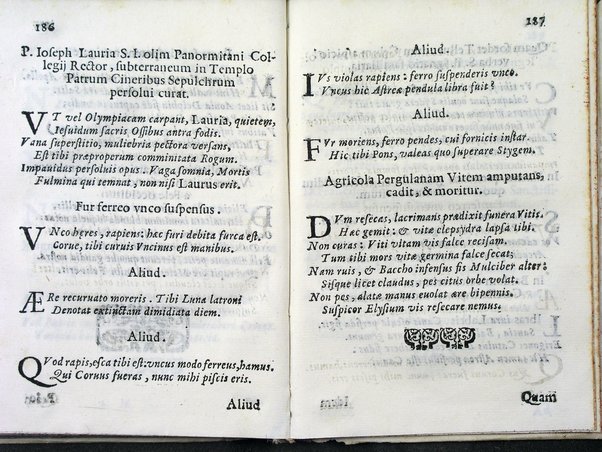 186
P. Ioseph Lauria S. I. olim Panormitani Col-
legij Rector, subterraneum in Templo
Patrum Cineribus Sepulchrum
persolui curat.
VT vel Olympiacam carpant, Lauria, quietem,
Iesuidum sacris Ossibus antra fodis.
Vana superstitio, muliebria pectora versans,
Est tibi præproperum comminitata Rogum.
Impauidus persoluis opus. Vaga somnia, Mortis
Fulmina qui temnat, non nisi Laurus erit.
Fur ferreo vnco suspensus.
VNco hæres, rapiens: hæc furi debita furca est.
Corue, tibi curuis Vncinus est manibus.
Aliud.
ÆRe recuruato moreris. Tibi Luna latroni
Denotat extinctam dimidiata diem.
Aliud.
QVod rapis, esca tibi est: vncus modo ferreus, hamus.
Qui Coruus fueras, nunc mihi piscis eris.
Aliud
187
Aliud.
IVs violas rapiens: ferro suspenderis vnco.
Vncus hic Astreæ pendula libra fuit?
Aliud.
FVr moriens, ferro pendes, cui fornicis instar.
Hic tibi Pons, valeas quo superare Stygem.
Agricola Pergulanam Vitem amputans,
cadit, & moritur.
DVm resecas, lacrimans prædixit funera Vitis.
Hæc gemit: & vitæ clepsydra lapsa tibi.
Non curas: Viti vitam vis falce recisam.
Tum tibi mors vitæ germina falce secat;
Nam ruis, & Baccho infensus fis Mulciber alter:
Sisque licet claudus, pes citus orbe volat.
Non pes, alatæ manus euolat ære bipennis.
Suspicor Elysium vis resecare nemus.
Quam